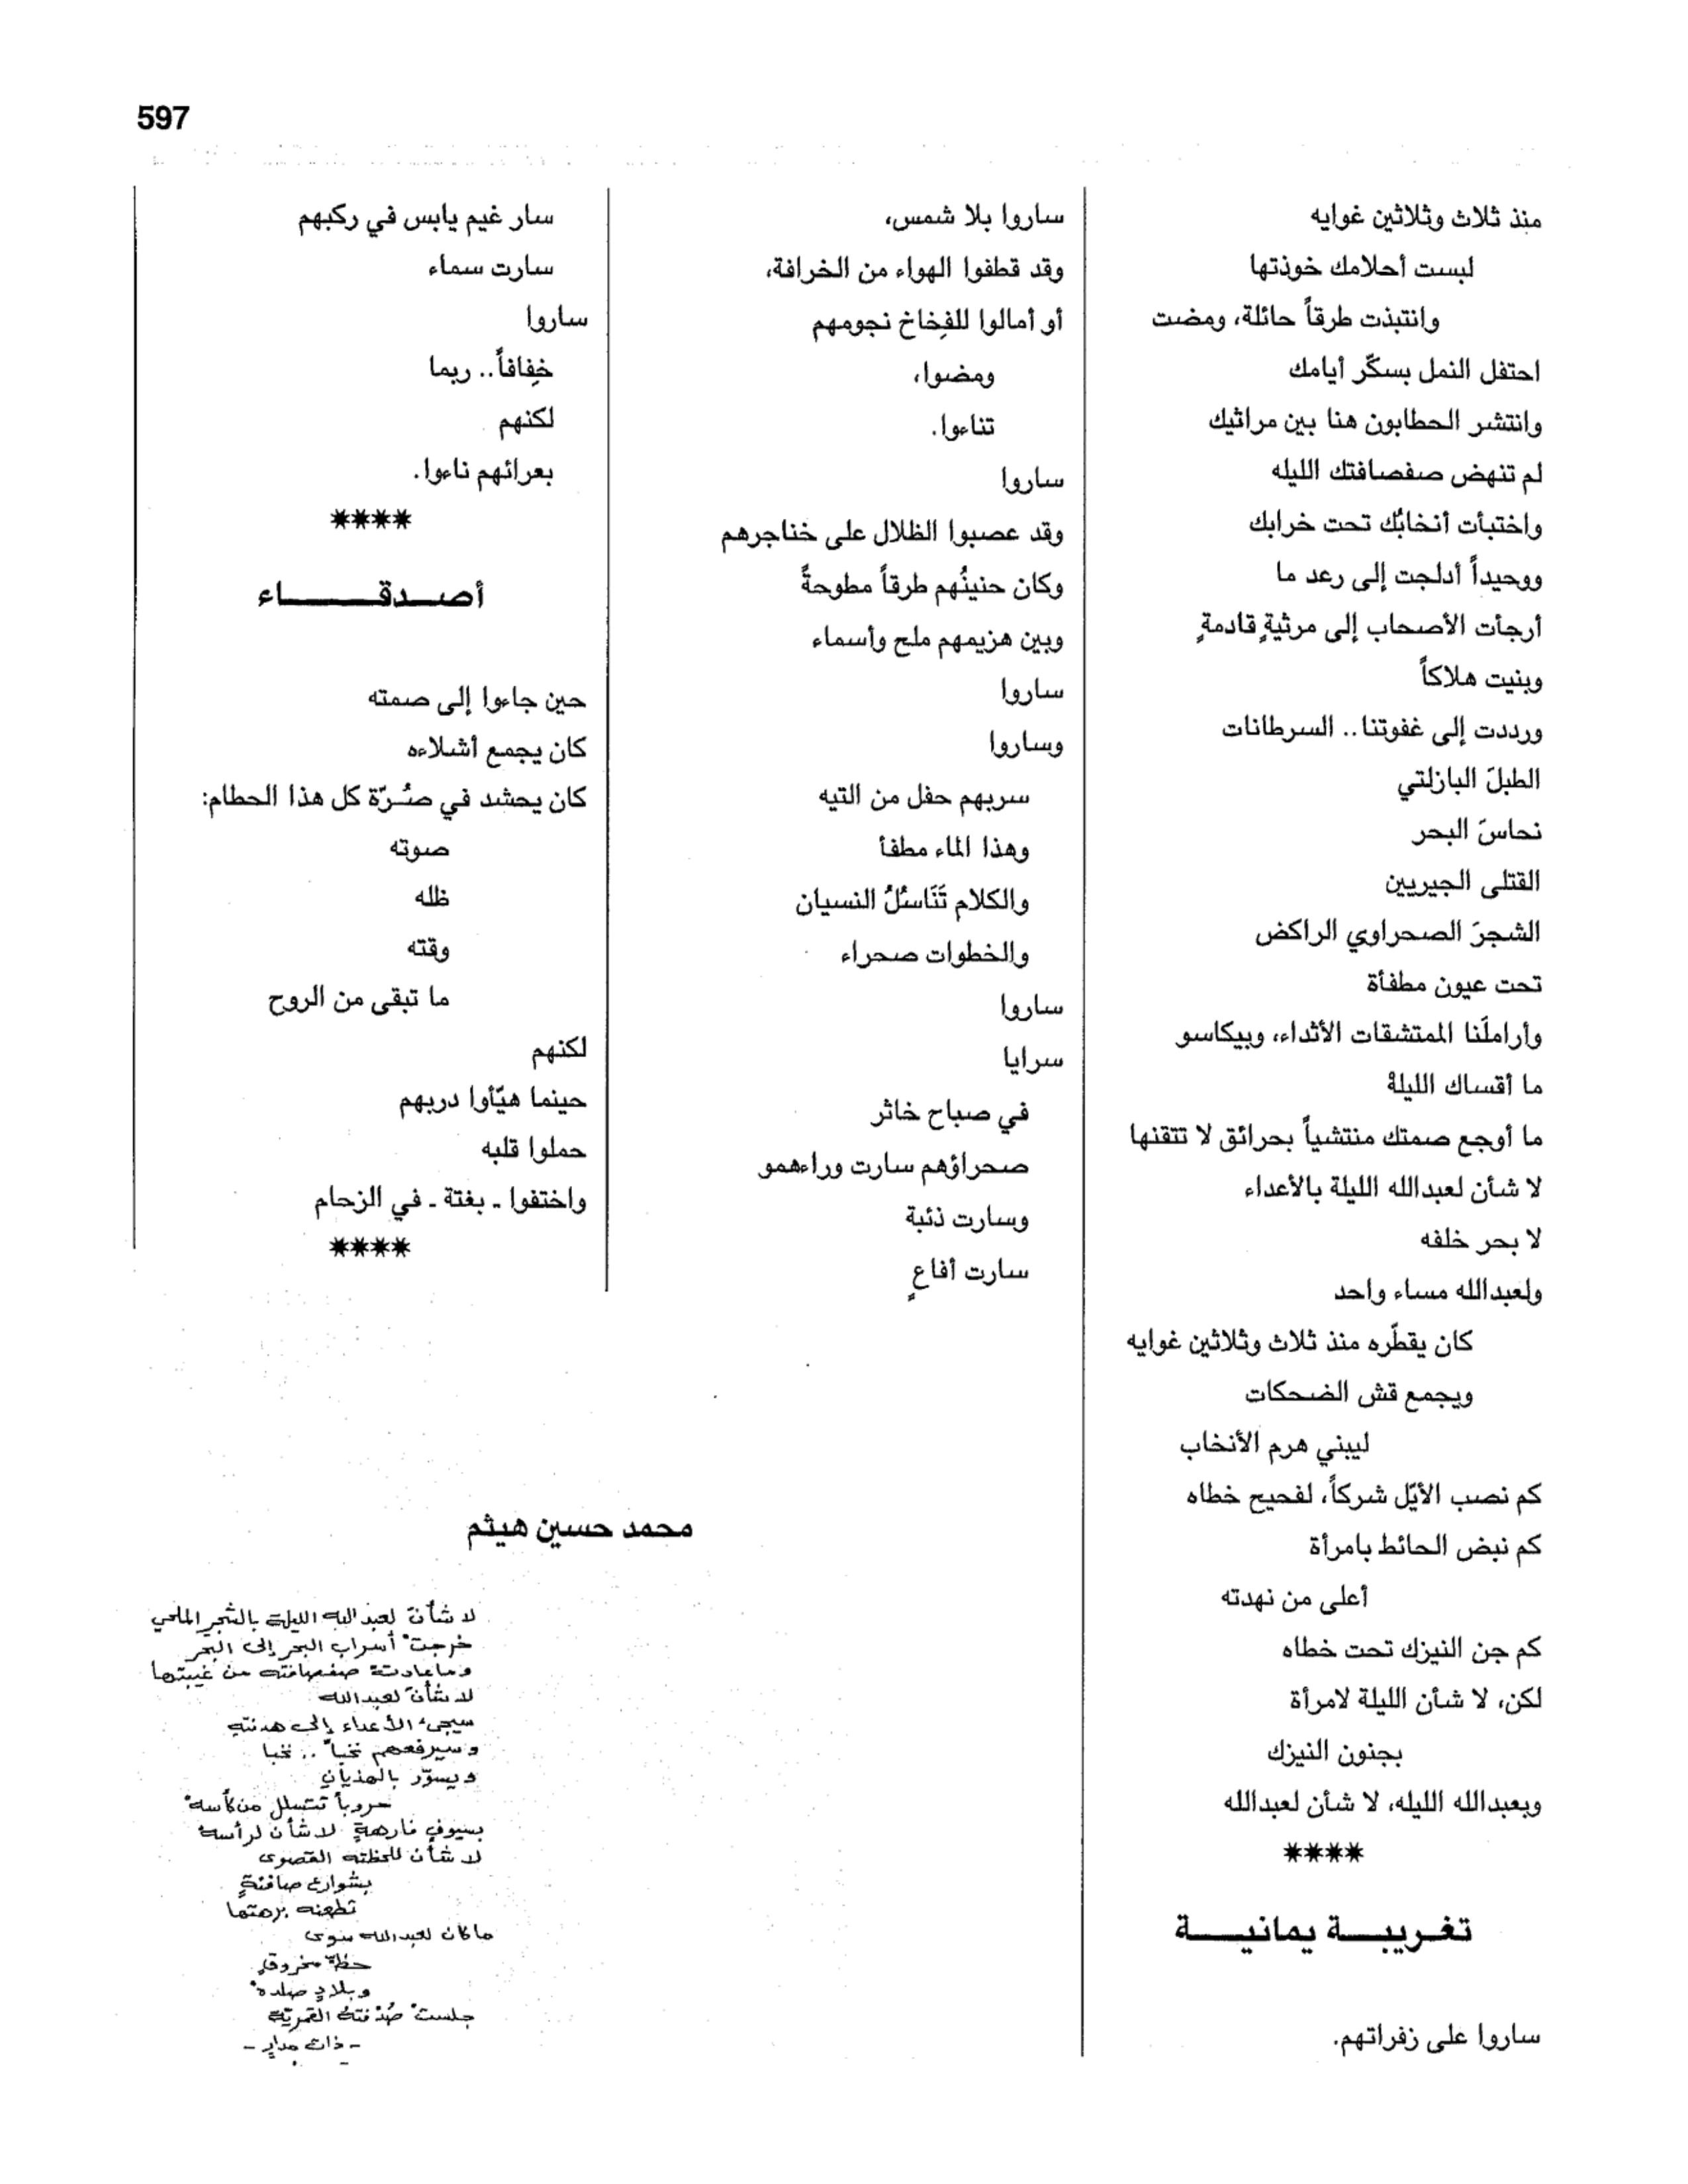 597
منذ ثلاث وثلاثين غوايه
لبست أحلامك خوذتها
وانتبذت طرقاً حائلة، ومضت
احتفل النمل بسكّر أيامك
وانتشر الحطابون هنا بين مراثيك
لم تنهض صفصافتك الليله
واختبأت أنخابُك تحت خرابك
ووحيداً أدلجت إلى رعد ما
أرجأت الأصحاب إلى مرثيةٍ قادمةٍ
وبنيت هلاكاً
ورددت إلى غفوتنا.. السرطانات
الطبلَ البازلتي
نحاسَ البحر
القتلى الجيريين
الشجرَ الصحراوي الراكض
تحت عيون مطفأة
وأراملَنا المتشقات الأثداء، وبيكاسو
ما أقساك الليلهْ
ما أوجع صمتك منتشياً بحرائق لا تتقنها
لا شأن لعبدالله الليلة بالأعداء
لا بحر خلفه
ولعبدالله مساء واحد
كان يقطّره منذ ثلاث وثلاثين غوايه
ويجمع قش الضحكات
ليبني هرم الأنخاب
كم نصب الأيّل شركاً، لفحيح خطاه
كم نبض الحائط بامرأة
أعلى من نهدته
كم جن النيزك تحت خطاه
لكن، لا شأن الليلة لامرأة
بجنون النيزك
وبعبدالله الليله، لا شأن لعبدالله
****
تغريبة يمانية
ساروا على زفراتهم.
ساروا بلا شمس،
وقد قطفوا الهواء من الخرافة،
أو أمالوا للفِخاخ نجومهم
ومضوا،
تناءوا.
ساروا
وقد عصبوا الظلال على خناجرهم
وكان حنينُهم طرقاً مطوحةً
وبين هزيمهم ملح وأسماء
ساروا
وساروا
سربهم حفل من التيه
وهذا الماء مطفأ
والكلام تَنَاسُلُ النسيان
والخطوات صحراء
ساروا
سرايا
في صباح خاثر
صحراؤهم سارت وراءهمو
وسارت ذئبة
سارت أفاعٍ
سار غيم يابس في ركبهم
سارت سماء
ساروا
خِفافاً.. ربما
لكنهم
بعرائهم ناءوا.
****
أصدقاء
حين جاءوا إلى صمته
كان يجمع أشلاءه
كان يحشد في صُرّة كل هذا الحطام:
صوته
ظله
وقته
ما تبقى من الروح
لكنهم
حينما هيّأوا دربهم
حملوا قلبه
واختفوا ـ بغتة ـ في الزحام
****
محمد حسين هيثم
لا شأنَ لعبد الله الليلة بالشجر الملحي
خرجتْ أسراب البحر إلى البحر
وما عادت صفصافته من غيبتها
لا شأنَ لعبدالله
سيجيء الأعداء إلى هدنتهِ
وسيرفعهم نخباً.. نخبا
ويسوّر بالهذيانِ
حروباً تتسلل من كأسهْ
بسيوفٍ فارهةٍ لا شأن لرأسهْ
لا شأن للحظته القصوى
بشوارع صافنةٍ
تطعنه برهتها
ما كان لعبدالله سوى
وبلادٍ صلدهْ
جلستْ القمريّة
- ذات مدارٍ -